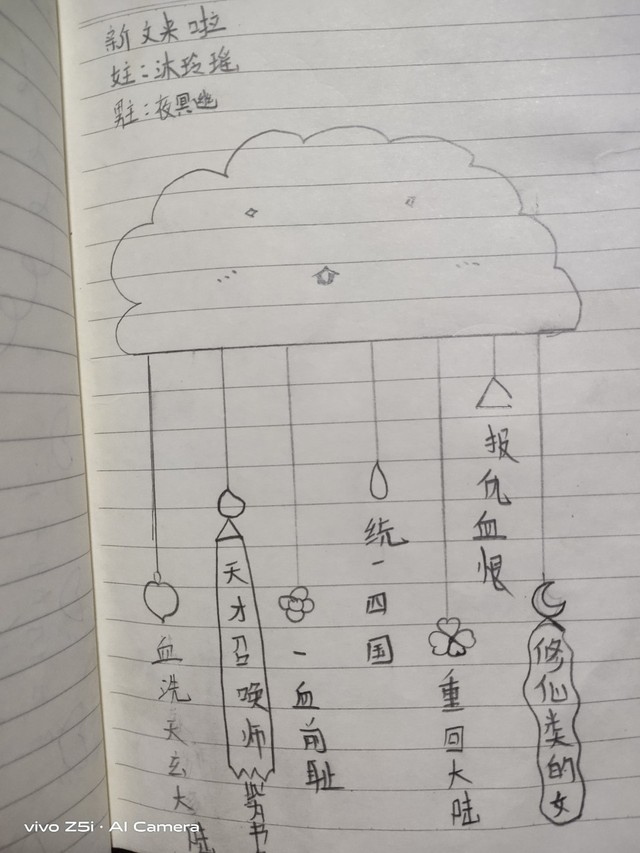 新文来啦
女主：沐玲瑶
男主：夜冥幽
血洗天玄大陆
天才召唤师
一血前耻
统一四国
重回大陆
报仇血恨
修仙类的女
vivo Z5i · AI Camera